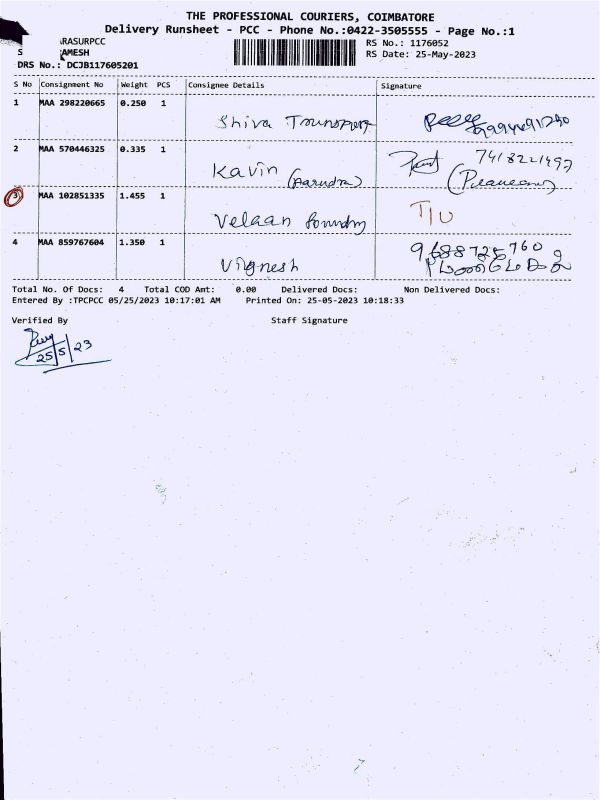 THE PROFESSIONAL COURIERS, COIMBATORE
Delivery Runsheet - PCC - Phone No.:0422-3505555 - Page No.:1
RASURPCC
RS No.: 1176052
S AMESH
RS Date: 25-May-2023
DRS No.: DCJB117605201
S No Consignment No Weight PCS Consignee Details Signature
1 MAA 298220665 0.250 1
Shiva Transport
2 MAA 570446325 0.335 1
Kavin (Aarudra) 7418221497
3 MAA 102851335 1.455 1
Velaan foundry T/U
4 MAA 859767604 1.350 1
Vignesh 9688725760
Total No. Of Docs: 4 Total COD Amt: 0.00 Delivered Docs: Non Delivered Docs:
Entered By :TPCPCC 05/25/2023 10:17:01 AM Printed On: 25-05-2023 10:18:33
Verified By Staff Signature
25/5/23